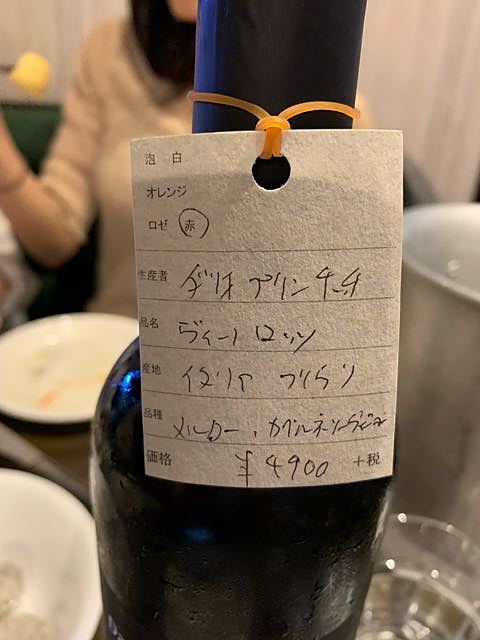 泡 白
オレンジ
ロゼ 赤
生産者 ダリオ プリンチッチ
品名 ヴィーノ ロッソ
産地 イタリア フリウリ
品種 メルロー、カベルネソーヴィニョ
価格 ¥4900 +税